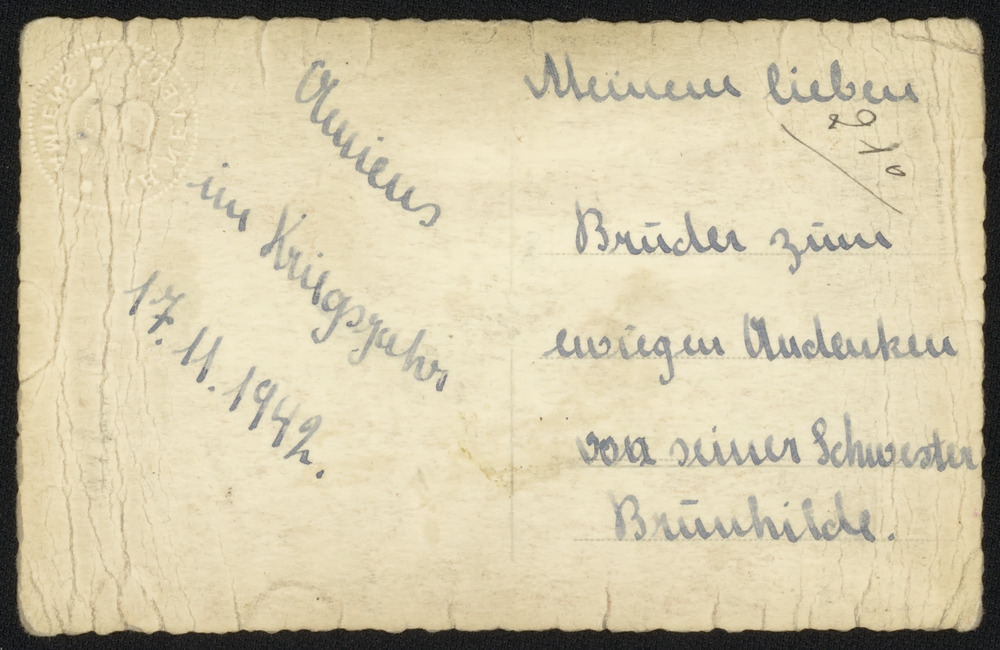 Amiens
im Kriegsjahr
17.11.1942.
Meinem lieben
Bruder zum
ewiegen Andenken
von seiner Schwester
Brunhilde.